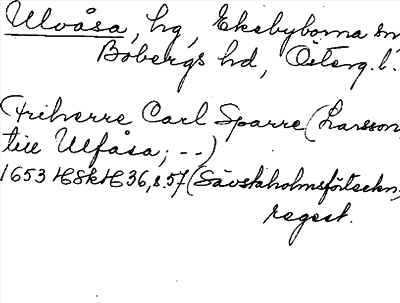 Ulvåsa, hg, Ekebyborna sn
Bobergs hd, Österg.l.
Friherre Carl Sparre (Larsson
till Ulfåsa; --)
1653 HSkH 36, s.57 (Sävstaholmsförteckn,
regest.